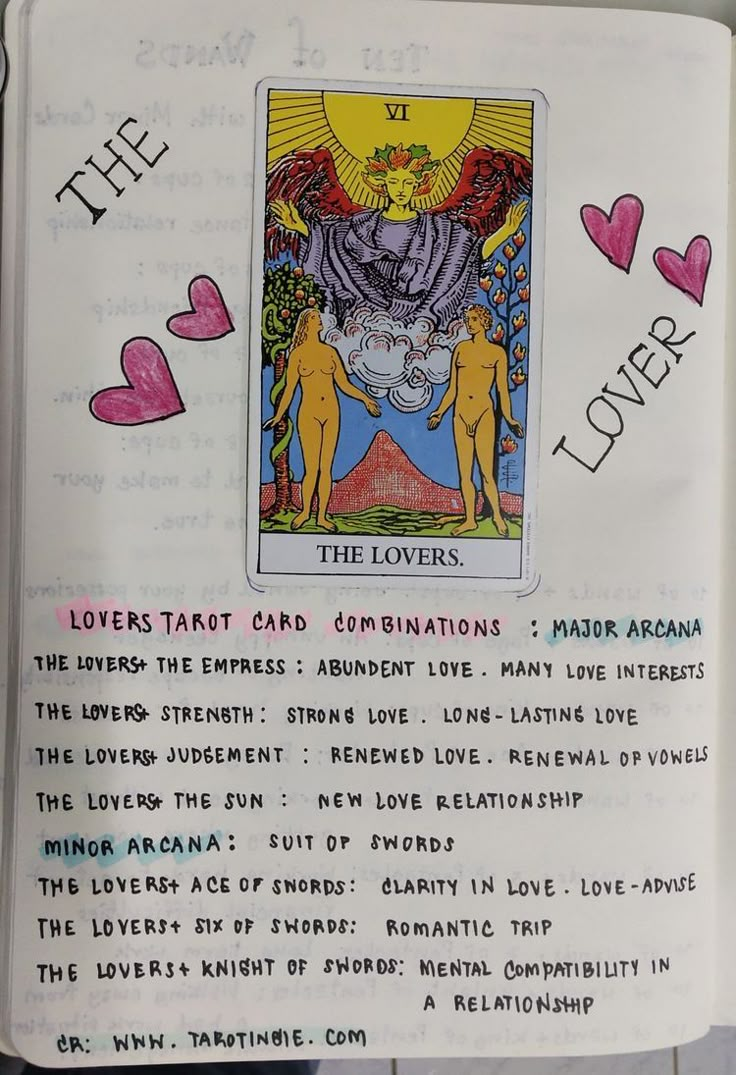 THE
LOVER
VI
THE LOVERS.
LOVERS TAROT CARD COMBINATIONS : MAJOR ARCANA
THE LOVERS+ THE EMPRESS : ABUNDENT LOVE . MANY LOVE INTERESTS
THE LOVERS+ STRENGTH : STRONG LOVE . LONG-LASTING LOVE
THE LOVERS+ JUDGEMENT : RENEWED LOVE . RENEWAL OF VOWELS
THE LOVERS+ THE SUN : NEW LOVE RELATIONSHIP
MINOR ARCANA : SUIT OF SWORDS
THE LOVERS+ ACE OF SWORDS: CLARITY IN LOVE . LOVE-ADVISE
THE LOVERS+ SIX OF SWORDS: ROMANTIC TRIP
THE LOVERS+ KNIGHT OF SWORDS: MENTAL COMPATIBILITY IN
A RELATIONSHIP
CR: WWW. TAROTINDIE. COM